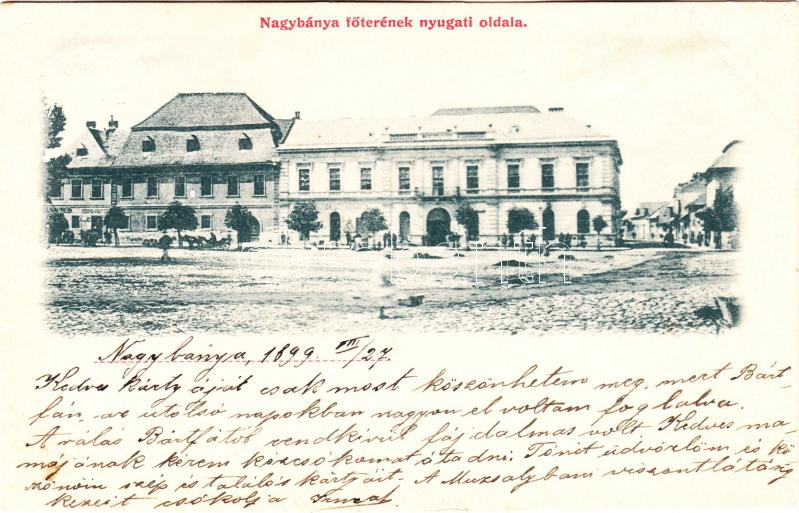 Nagybánya főterének nyugati oldala.
Nagybánya, 1899. VIII/27.
Kedves kártyáját csak most köszönhetem meg, mert Bárt-
fán, az utolsó napokban nagyon el voltam foglalva.
A válás Bártfától rendkívül fájdalmas volt. Kedves ma-
májának kérem kézcsókomat átadni. Tónit üdvözlöm és kö-
szönöm szép és találós kártyáit. A Muzsalyban viszontlátásig
kezeit csókolja